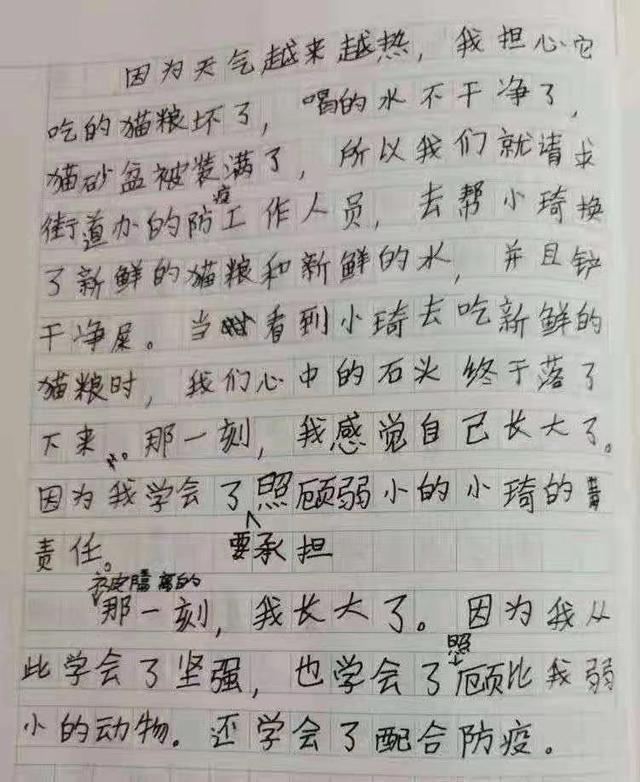 因为天气越来越热，我担心它
吃的猫粮坏了，喝的水不干净了，
猫砂盆被装满了，所以我们就请求
街道办的防疫工作人员，去帮小琦换
了新鲜的猫粮和新鲜的水，并且铲
干净屎。当看到小琦去吃新鲜的
猫粮时，我们心中的石头终于落了
下来。那一刻，我感觉自己长大了。
因为我学会了要承担照顾弱小的小琦的
责任。
被隔离的那一刻，我长大了。因为我从
此学会了坚强，也学会了照顾比我弱
小的动物。还学会了配合防疫。